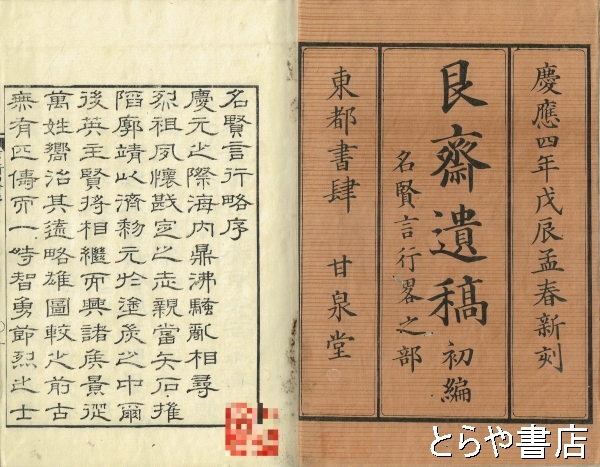 慶應四年戊辰孟春新刻
艮齋遺稿初編
名賢言行畧之部
東都書肆 甘泉堂
名賢言行略序
慶元之際海內鼎沸騷亂相尋
烈祖夙懷戡定之志親當矢石摧
陷廓靖以濟黎元於塗炭之中爾
後英主賢將相繼而興諸矦景從
萬姓嚮治其遠略雄圖較之前古
無有匹儔而一時智勇節烈之士
とらや書店